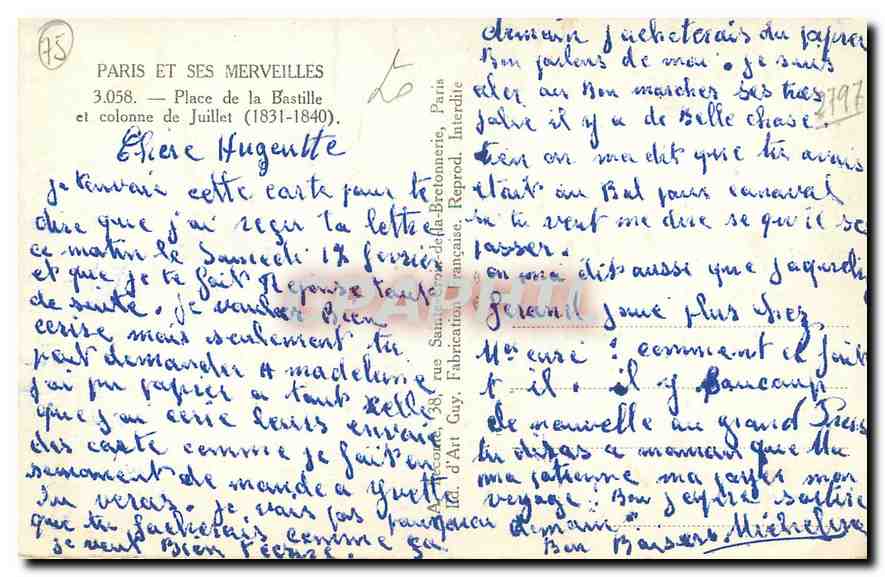 75
PARIS ET SES MERVEILLES
3.058. — Place de la Bastille
et colonne de Juillet (1831-1840).
Chère Huguette
je t'envoie cette carte pour te
dire que j'ai reçu ta lettre
ce matin le Samedi 17 fevrier
et que je te fait Reponse toute
de suite. je vouler Bien
ecrire mais seulement tu
peut demander A madeleine
j'ai pu papier a tout
que j'ai ecrie leurs envoie
des carte comme je fait en
se moment demande a yvette
Tu veras. je vois pas pourquoi
que tu facherais comme ça
je veut Bien t'ecrire.
A. Leconte, 38, rue Sainte-Croix-de-la-Bretonnerie, Paris
Ed. d'Art Guy, Fabrication Française, Reprod. Interdite
CPARPHIL
demain j'acheterais du papier
Bon parlons de moi. je suis
aler au Bon marches ses tres
jolie il y a de Belle chose.
2797
tien on ma dit que tu avais
etait au Bal pour canaval
si tu veut me dire se qu'il se
passer.
on ma dit aussi que
joue plus chez
comment ce fait
t il. il y Beaucoup
de nouvelle au grand
tu diras a maman que
ma ma payer mon
voyage. Bon j'espere
demain.
Bon Baisers Micheline